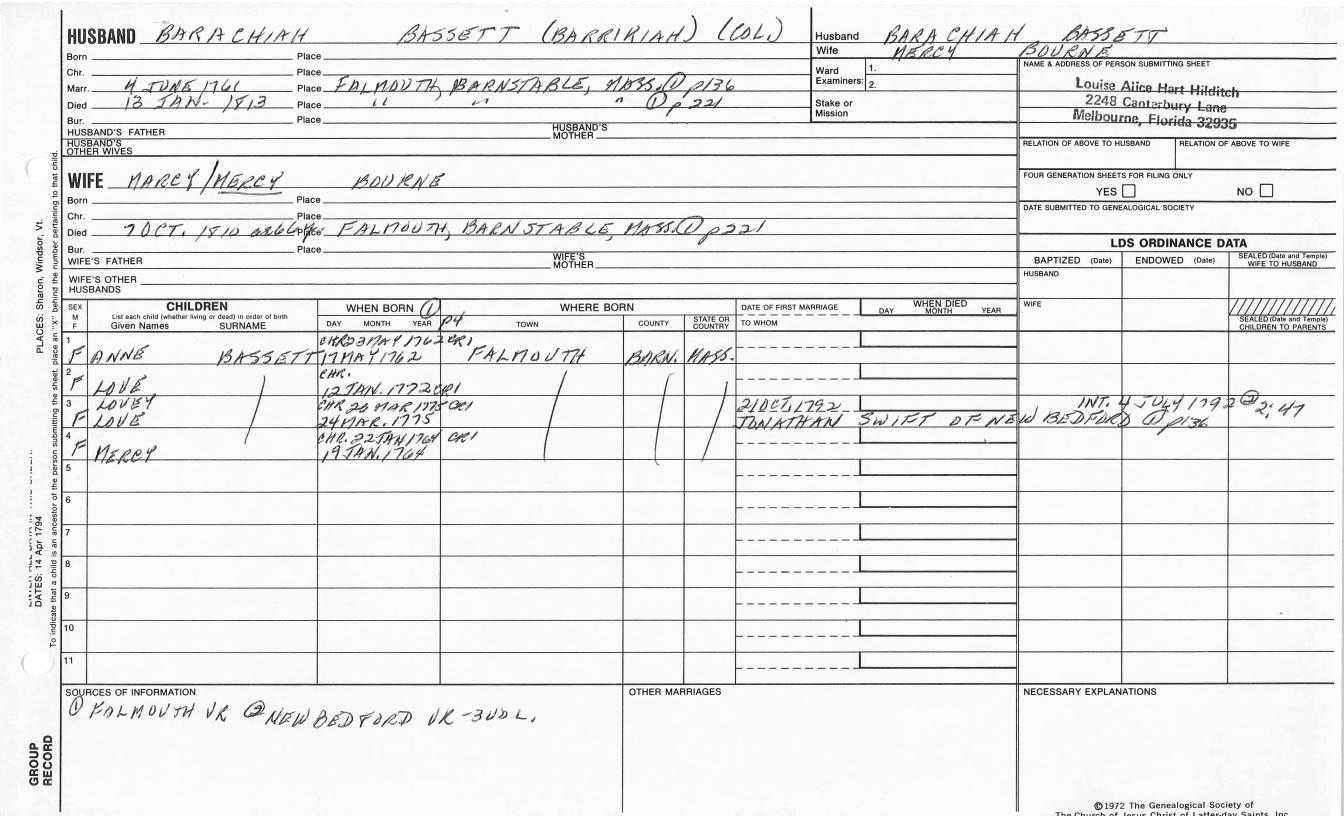 HUSBAND BARACHIAH BASSETT (BARRIKIAH) (COL.)
Born Place
Chr. Place
Marr. 4 JUNE 1761 Place FALMOUTH, BARNSTABLE, MASS. ① p136
Died 13 JAN. 1813 Place " " " ① p 221
Bur. Place
HUSBAND'S FATHER HUSBAND'S MOTHER
HUSBAND'S OTHER WIVES
Husband BARACHIAH BASSETT
Wife MERCY BOURNE
Ward Examiners: 1.
2.
Stake or Mission
NAME & ADDRESS OF PERSON SUBMITTING SHEET
Louise Alice Hart Hilditch
2248 Canterbury Lane
Melbourne, Florida 32935
RELATION OF ABOVE TO HUSBAND RELATION OF ABOVE TO WIFE
FOUR GENERATION SHEETS FOR FILING ONLY
YES NO
DATE SUBMITTED TO GENEALOGICAL SOCIETY
WIFE MARCY/MERCY BOURNE
Born Place
Chr. Place
Died 7 OCT. 1810 Place FALMOUTH, BARNSTABLE, MASS. ① p221
Bur. Place
WIFE'S FATHER WIFE'S MOTHER
WIFE'S OTHER HUSBANDS
LDS ORDINANCE DATA
BAPTIZED (Date) ENDOWED (Date) SEALED (Date and Temple) WIFE TO HUSBAND
HUSBAND
WIFE
SEALED (Date and Temple) CHILDREN TO PARENTS
SEX M F
CHILDREN
List each child (whether living or dead) in order of birth
Given Names SURNAME
WHEN BORN ① p4
DAY MONTH YEAR
WHERE BORN
TOWN COUNTY STATE OR COUNTRY
DATE OF FIRST MARRIAGE
TO WHOM
WHEN DIED
DAY MONTH YEAR
1 CHR 23 MAY 1762 CR1
F ANNE BASSETT 17 MAY 1762 FALMOUTH BARN. MASS.
2 CHR.
F LOVE 12 JAN. 1772 CR1
3 LOVEY CHR 26 MAR 1775 CR1 21 OCT, 1792 INT. 4 JULY 1792 ② 2:47
F LOVE 24 MAR. 1775 JONATHAN SWIFT OF NEW BEDFORD ① p136
4 CHR. 22 JAN 1764 CR1
F MERCY 19 JAN. 1764
5
6
7
8
9
10
11
SOURCES OF INFORMATION
① FALMOUTH VR ② NEW BEDFORD VR-3VOL.
OTHER MARRIAGES
NECESSARY EXPLANATIONS
©1972 The Genealogical Society of
The Church of Jesus Christ of Latter-day Saints, Inc.
PLACES: Sharon, Windsor Vt.
DATES: 14 Apr 1794
To indicate that a child is an ancestor of the person submitting the sheet, place an "X" behind the number pertaining to that child.
GROUP
RECORD